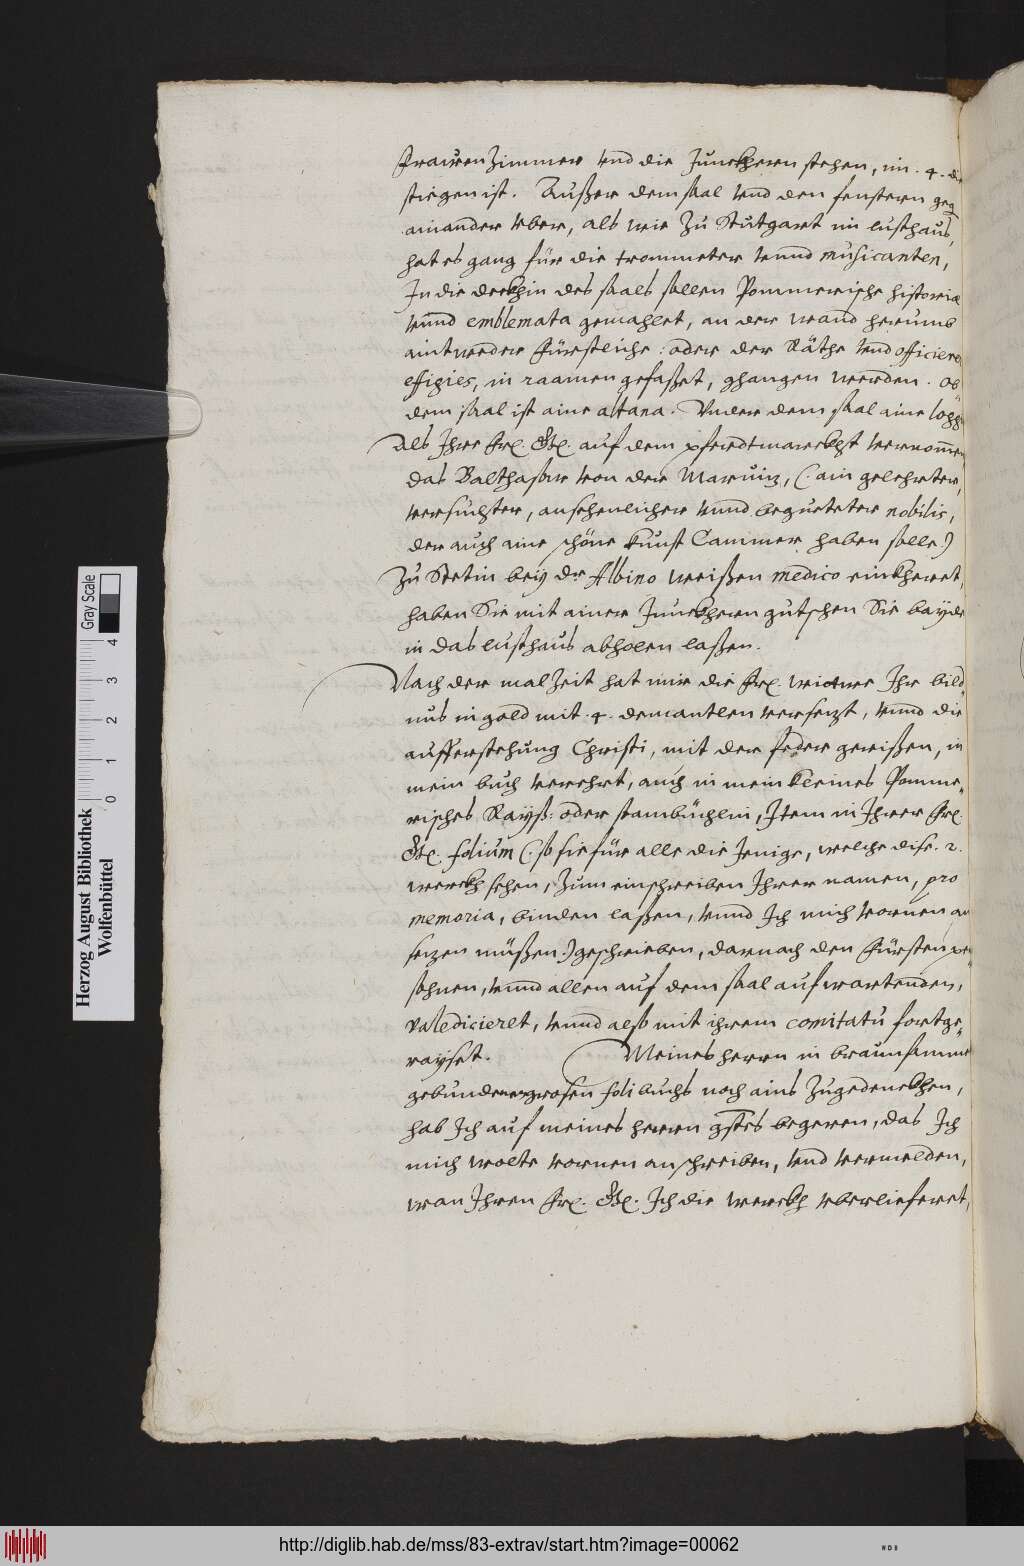 Frawen Zimmer vnd die Junckhern stehen, im .4. die
stiegen ist. Außer dem saal vnd den fenstern geg
ainander vber, als wie zu Stutgart im lusthaus,
hat es gang für die trommeter vnnd musicanten,
In die deckhin des saals sollen Pommerische historiæ
vnnd emblemata gemahlet, an der wand herumb
aintweder Fürstliche: oder der Räthe vnd officierer
effigies, in raamen gefaßet, ghangen werden. Ob
dem saal ist aine altana. Vnder dem saal aine logg
Als Ihre Frl. Gl. auf dem pferdtmarckht vernom̄en
das Balthasar von der Marwiz, (: ain gelehrter,
versuchter, ansehenlicher vnnd begueteter nobilis,
der auch aine schöne kunst Cammer haben solle)
Zu Stetin bey dr Albino Weißen medico einkheret,
haben Sie mit ainer Junckhern gutschen Sie bayde
in das lusthaus abholen laßen.
Nach der malzeit hat mir die Frl. wittwe Ihr bild-
nus in gold mit .4. demantlen versezt, vnnd die
aufferstehung Christi, mit der feder gerißen, in
mein buch verehrt, auch in mein kleines Pomme-
risches Rayß: oder stambüchlin, Item in Ihrer Frl.
Gl. folium (: so sie für alle die Jenige, welche dise .2.
werckh sehen, zum einschreiben Ihrer namen, pro
memoria, binden laßen, vnnd Ich mich vornen an
sezen müßen:) geschrieben, darnach den Fürsten per-
sohnen, vnnd allen auf dem saal aufwartenden,
valedicieret, vnnd also mit ihrem comitatu fortge-
rayset. Meines herrn in braun samme
gebundenen grosen foli buchs noch ains zugedenckhen,
hab Ich auf meines herrn gstes begeren, das Ich
mich wolte vornen anschreiben, vnd vermelden,
wan Ihren Frl. Gl. Ich die werckh vberlieferet,
Herzog August Bibliothek
Wolfenbüttel
0 1 2 3 4
Gray Scale
http://diglib.hab.de/mss/83-extrav/start.htm?image=00062